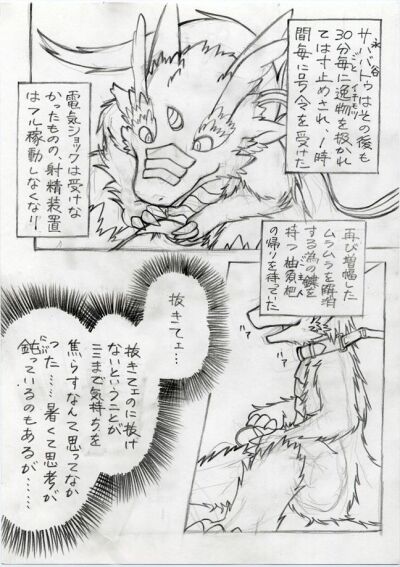 サババトゥはその後も
30分毎に逸物を扱かれ
イチモツ
ては寸止めされ、1時
間毎に号令を受けた
電気ショックは受けな
かったものの、射精装置
はフル稼動しなくなり、
再び増幅した
ムラムラを解消
する為の鍵を
持つ
の帰りを待っていた
抜きてェ…
抜きてェのに抜け
ないということが
ここまで気持ちを
焦らすなんて思ってなか
った……暑くて思考が
鈍っているのもあるが……